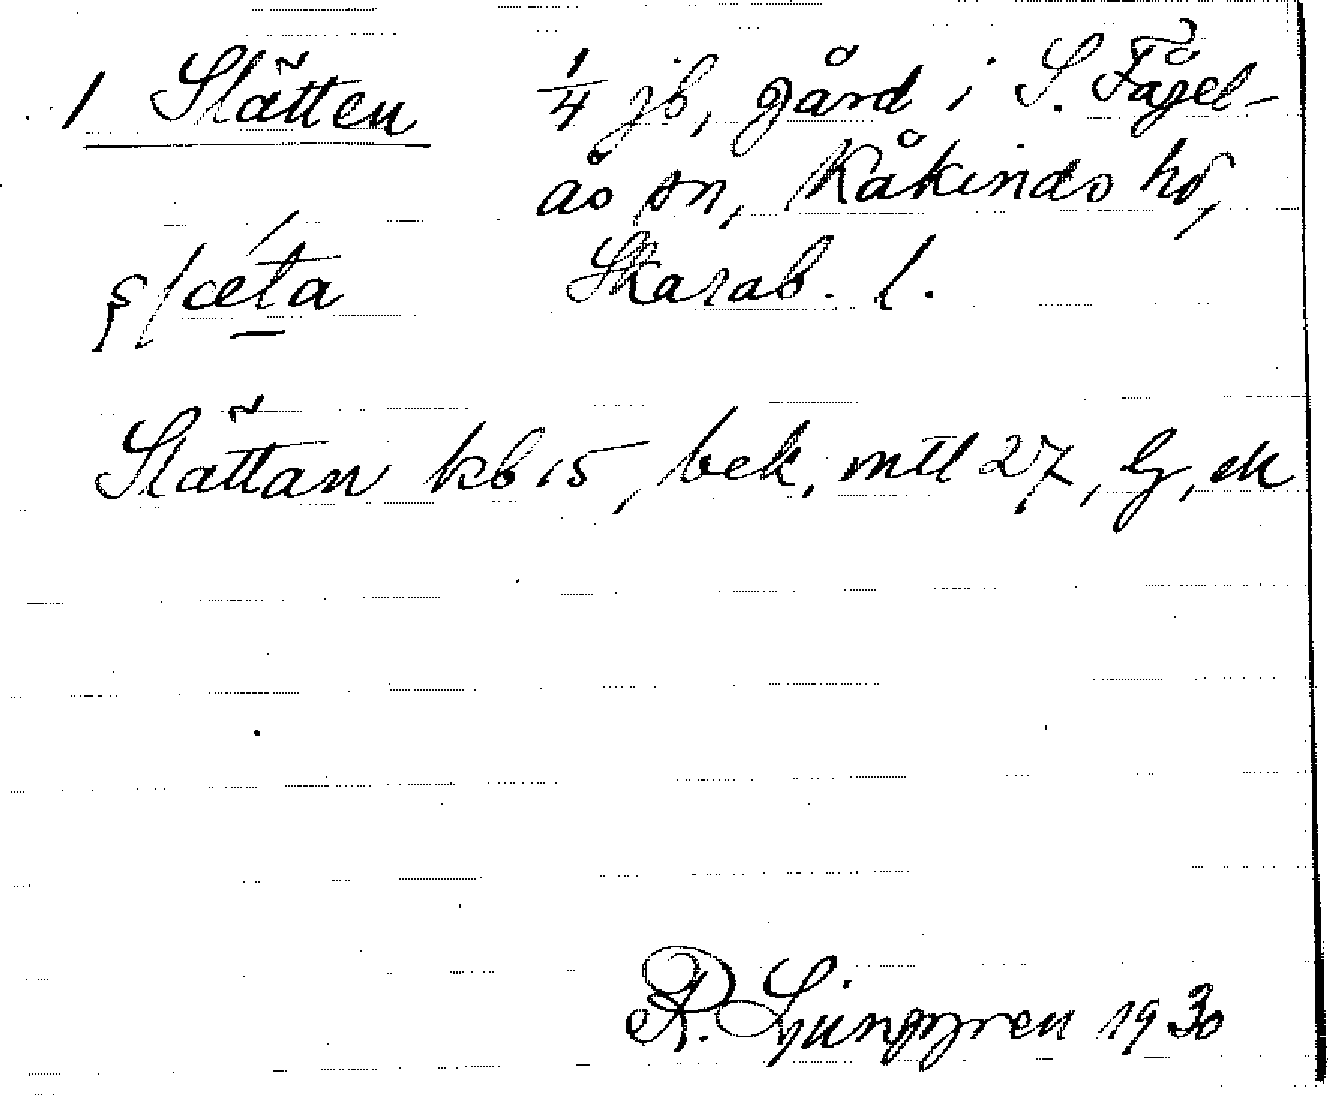 1 Slätten 1/4 jb, gård i S. Fågel-
ås sn, Kåkinds hd,
slæ´ta Skarab. l.
Slättan kb 15, bek, mtl 27, G, ek
R. Ljunggren 1930